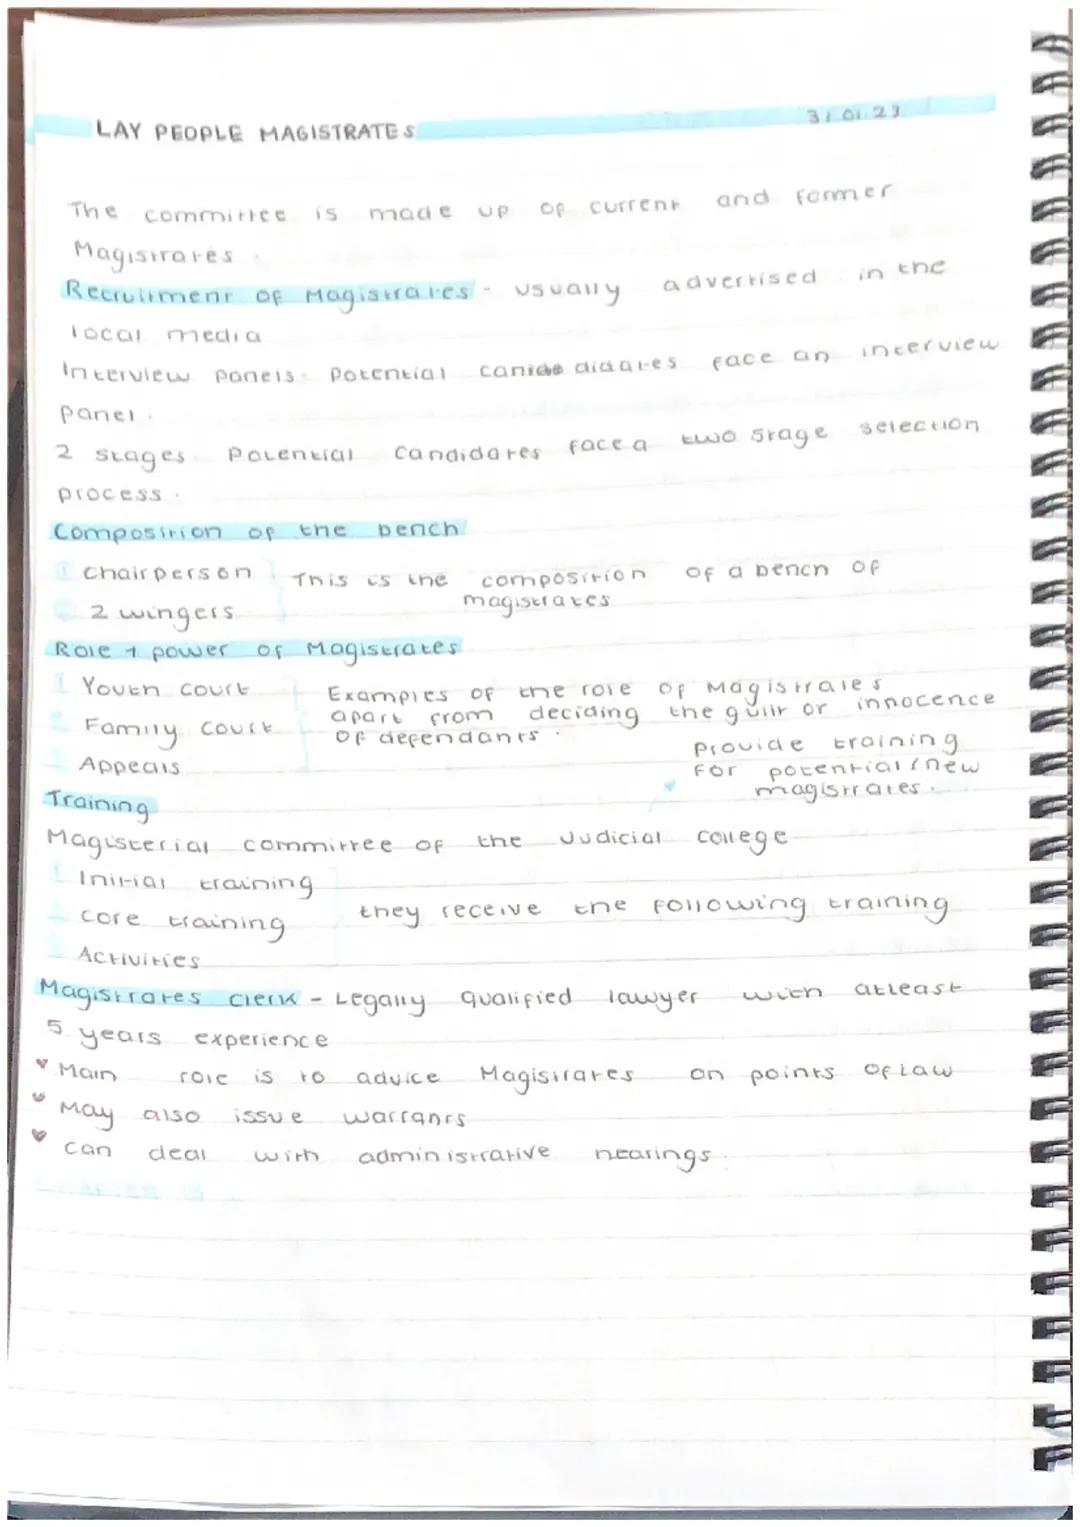 LAY PEOPLE MAGISTRATES
31.01.23
The committee is made up of current and former
Magistrates.
Recruitment of Magistrates - usually advertised in the
local media
Interview panels. Potential canide didates face an interview
panel.
2 stages. Potential candidates face a two stage selection
process.
Composition of the bench
1 Chairperson
2 2 wingers
This is the composition of a bench of
magistrates
Role + power of Magistrates
1 Youth court
2 Family court
3 Appeals
Examples of the role of Magistrates
apart from deciding the guilt or innocence
of defendants.
provide training
for potential/new
magistrates.
Training
Magisterial committee of the Judicial College
1 Initial training
2 core training
3 Activities
they receive the following training
Magistrates clerk - Legally qualified lawyer with atleast
5 years experience
♥ Main role is to advice Magistrates on points of law
♥ May also issue warrants
♥ can deal with administrative hearings.